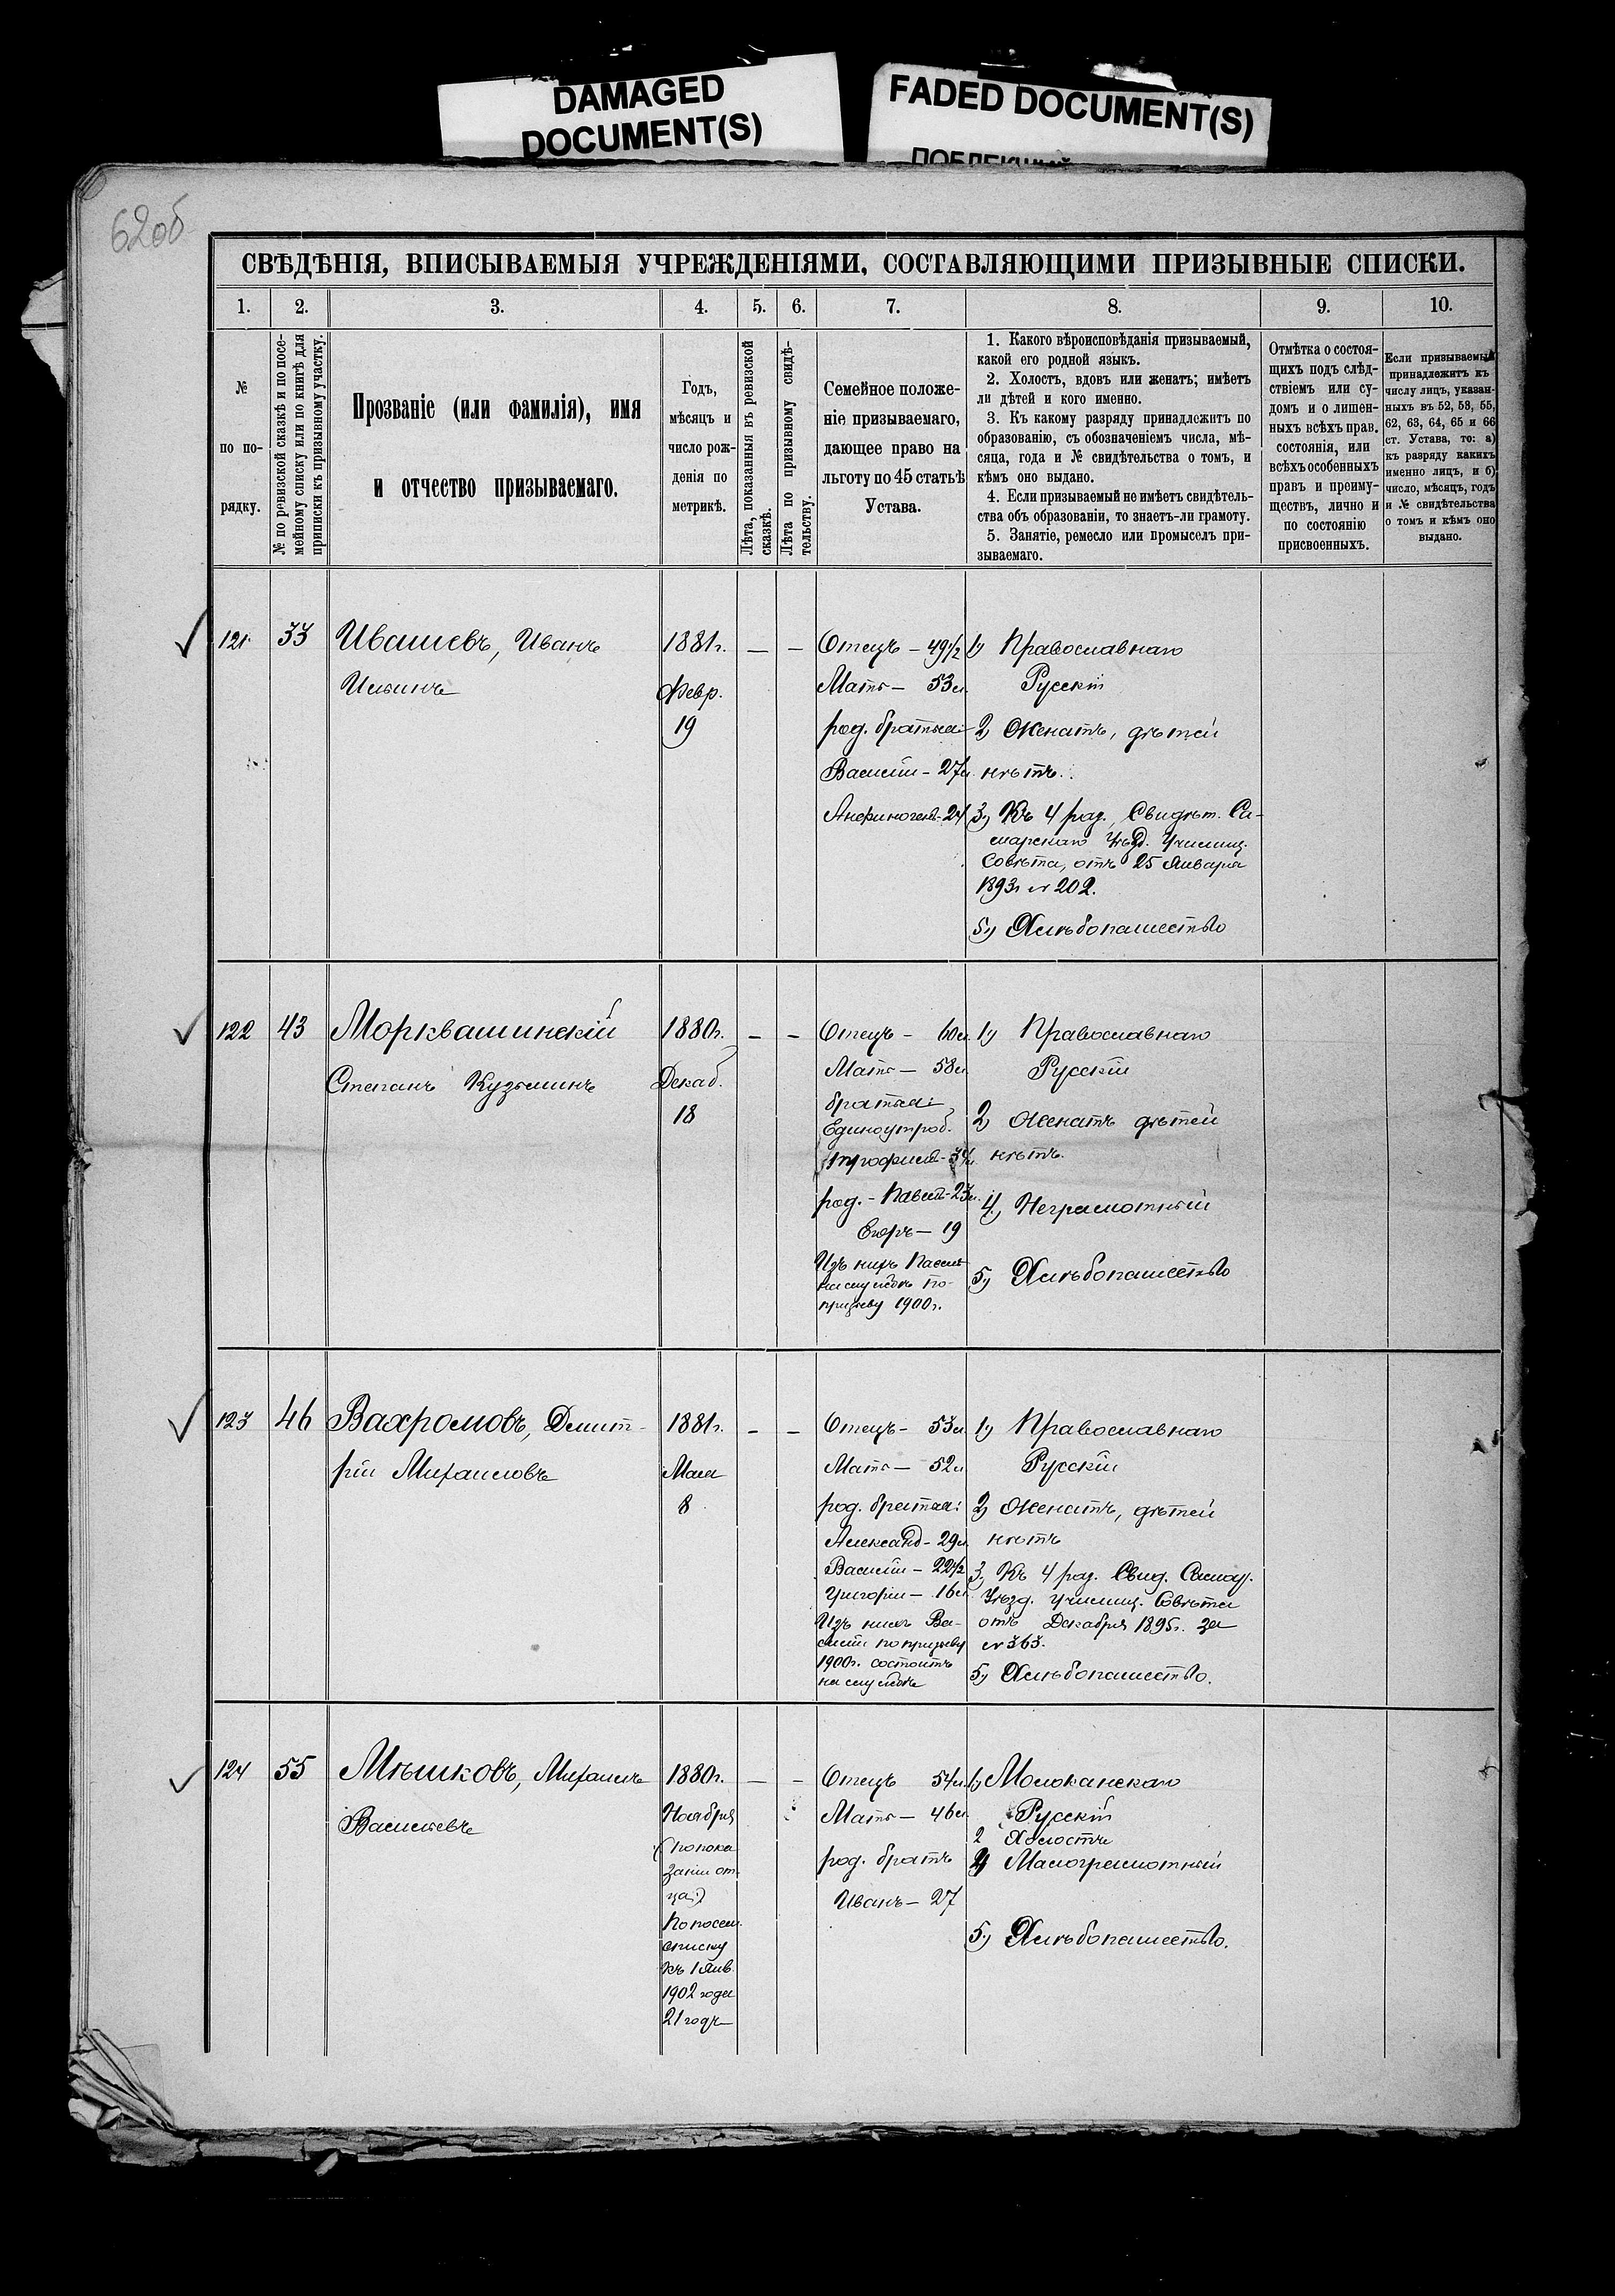 DAMAGED
DOCUMENT(S)
FADED DOCUMENT(S)
62об
СВѢДѢНІЯ, ВПИСЫВАЕМЫЯ УЧРЕЖДЕНІЯМИ, СОСТАВЛЯЮЩИМИ ПРИЗЫВНЫЕ СПИСКИ.
1. 2. 3. 4. 5. 6. 7. 8. 9. 10.
№
по по-
рядку.
№ по ревизской сказкѣ и по посе-
мейному списку или по книгѣ для
приписки къ призывному участку.
Прозваніе (или фамилія), имя
и отчество призываемаго.
Годъ,
мѣсяцъ и
число рож-
денія по
метрикѣ.
Лѣта, показанныя въ ревизской
сказкѣ.
Лѣта по призывному свидѣ-
тельству.
Семейное положе-
ніе призываемаго,
дающее право на
льготу по 45 статьѣ
Устава.
1. Какого вѣроисповѣданія призываемый,
какой его родной языкъ.
2. Холостъ, вдовъ или женатъ; имѣетъ
ли дѣтей и кого именно.
3. Къ какому разряду принадлежитъ по
образованію, съ обозначеніемъ числа, мѣ-
сяца, года и № свидѣтельства о томъ, и
кѣмъ оно выдано.
4. Если призываемый не имѣетъ свидѣтель-
ства объ образованіи, то знаетъ-ли грамоту.
5. Занятіе, ремесло или промыселъ при-
зываемаго.
Отмѣтка о состоя-
щихъ подъ слѣд-
ствіемъ или су-
домъ и о лишен-
ныхъ всѣхъ прав.
состоянія, или
всѣхъ особенныхъ
правъ и преиму-
ществъ, лично и
по состоянію
присвоенныхъ.
Если призываемый
принадлежитъ къ
числу лицъ, указан-
ныхъ въ 52, 53, 55,
62, 63, 64, 65 и 66
ст. Устава, то: а)
къ разряду какихъ
именно лицъ, и б)
число, мѣсяцъ, годъ
и № свидѣтельства
о томъ и кѣмъ оно
выдано.
121
33
Ивашевъ, Иванъ
Ильинъ
1881г.
Февр.
19
—
—
Отецъ — 49 1/2
Мать — 53 л
род. братья:
Василій — 27 л
Анфиногенъ — 24
1) Православнаго
Русскій
2) Женатъ, дѣтей
нѣтъ.
3) Къ 4 раз., Свидѣт. Са-
марскаго Уѣзд. Училищ.
Совѣта, отъ 25 Января
1893г № 202.
5) Хлѣбопашество
122
43
Морквашинскій
Степанъ Кузьминъ
1880г.
Декаб.
18
—
—
Отецъ — 60 л
Мать — 58 л
братья:
Единоутроб.
род. — Павелъ — 23 л.
Егоръ — 19
Изъ нихъ Павелъ
на службѣ по
призыву 1900г.
1) Православнаго
Русскій
2) Женатъ дѣтей
нѣтъ.
4) Неграмотный
5) Хлѣбопашество
123
46
Вахромовъ, Димит-
рій Михаиловъ
1881г.
Мая
8
—
—
Отецъ — 53 л
Мать — 52 л
род. братья:
Александ — 29 л
Василій — 22 1/2
Григорій — 16 л
Изъ нихъ Ва-
силій по призыву
1900г. состоитъ
на службѣ
1) Православнаго
Русскій
2) Женатъ, дѣтей
нѣтъ
3) Къ 4 раз. Свид. Самар.
Уѣзд. Училищ. Совѣта
отъ Декабря 1895г. за
№ 363.
5) Хлѣбопашество.
124
55
Мѣшковъ, Михаилъ
Васильевъ
1880г.
Ноября
(по пока
занію от
ца)
По посем.
списку
къ 1 Янв.
1902 года
21 годъ
—
—
Отецъ 54 л
Мать — 46 л
род. братъ
Иванъ — 27
1) Молоканскаго
Русскій
2 Холостъ
4) Малограмотный
5) Хлѣбопашество.